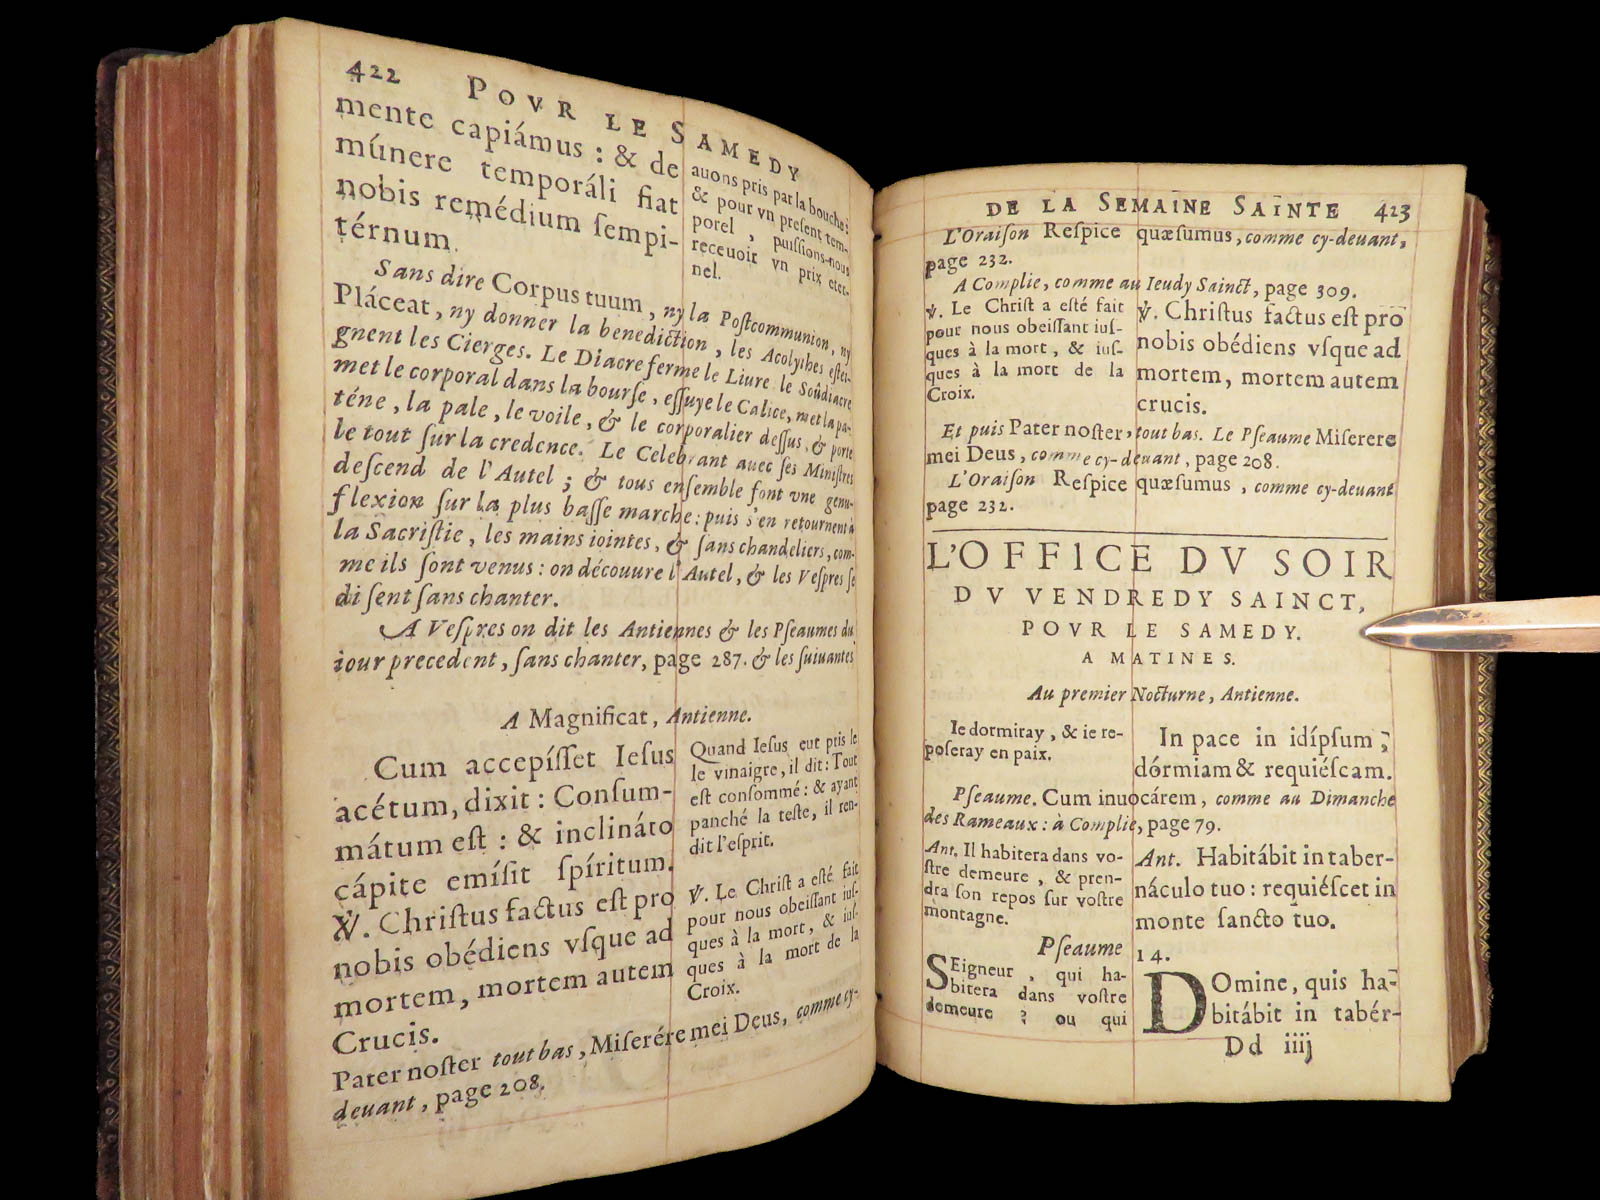 422 POVR LE SAMEDY
mente capiámus : & de
múnere temporáli fiat
nobis remédium ſempi-
térnum.
auons pris par la bouche:
& pour vn preſent tem-
porel , puiſſions-nous
receuoir vn prix eter-
nel.
Sans dire Corpus tuum , ny la Poſtcommunion, ny
Pláceat, ny donner la benediction , les Acolythes eſtei-
gnent les Cierges. Le Diacre ferme le Liure le Soûdiacre
met le corporal dans la bourſe, eſſuye le Calice, met la pa-
téne , la pale , le voile , & le corporalier deſſus, & porte
le tout ſur la credence. Le Celebrant auec ſes Miniſtres
deſcend de l'Autel ; & tous enſemble font vne genu-
flexion ſur la plus baſſe marche : puis s'en retournent à
la Sacriſtie , les mains iointes, & ſans chandeliers, com-
me ils ſont venus : on découure l'Autel, & les Veſpres ſe
diſent ſans chanter.
A Veſpres on dit les Antiennes & les Pſeaumes du
iour precedent, ſans chanter, page 287. & les ſuiuantes
A Magnificat, Antienne.
Cum accepíſſet Ieſus
acétum, dixit : Conſum-
mátum eſt : & inclináto
cápite emíſit ſpíritum.
℣. Chriſtus factus eſt pro
nobis obédiens vſque ad
mortem, mortem autem
Crucis.
Quand Ieſus eut pris le
le vinaigre, il dit : Tout
eſt conſommé : & ayant
panché la teſte, il ren-
dit l'eſprit.
℣. Le Chriſt a eſté fait
pour nous obeïſſant iuſ-
ques à la mort, & iuſ-
ques à la mort de la
Croix.
Pater noſter tout bas, Miſerére mei Deus, comme cy-
deuant, page 208.
DE LA SEMAINE SAINTE 423
L'Oraiſon Reſpice quæſumus, comme cy-deuant,
page 232.
A Complie, comme au Ieudy Sainct, page 309.
℣. Le Chriſt a eſté fait
pour nous obeïſſant iuſ-
ques à la mort, & iuſ-
ques à la mort de la
Croix.
℣. Chriſtus factus eſt pro
nobis obédiens vſque ad
mortem, mortem autem
crucis.
Et puis Pater noſter, tout bas. Le Pſeaume Miſerere
mei Deus, comme cy-deuant, page 208.
L'Oraiſon Reſpice quæſumus , comme cy-deuant
page 232.
L'OFFICE DV SOIR
DV VENDREDY SAINCT,
POVR LE SAMEDY.
A MATINES.
Au premier Nocturne, Antienne.
Ie dormiray, & ie re-
poſeray en paix.
In pace in idípſum ;
dórmiam & requiéſcam.
Pſeaume. Cum inuocárem, comme au Dimanche
des Rameaux : à Complie, page 79.
Ant. Il habitera dans vo-
ſtre demeure , & pren-
dra ſon repos ſur voſtre
montagne.
Ant. Habitábit in taber-
náculo tuo : requiéſcet in
monte ſancto tuo.
Pſeaume 14.
SEigneur , qui ha-
bitera dans voſtre
demeure ? ou qui
DOmine, quis ha-
bitábit in tabér-
Dd iiij